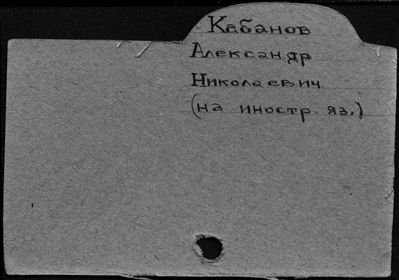 Кабанов
Александр
Николаевич
(на иностр. яз.)